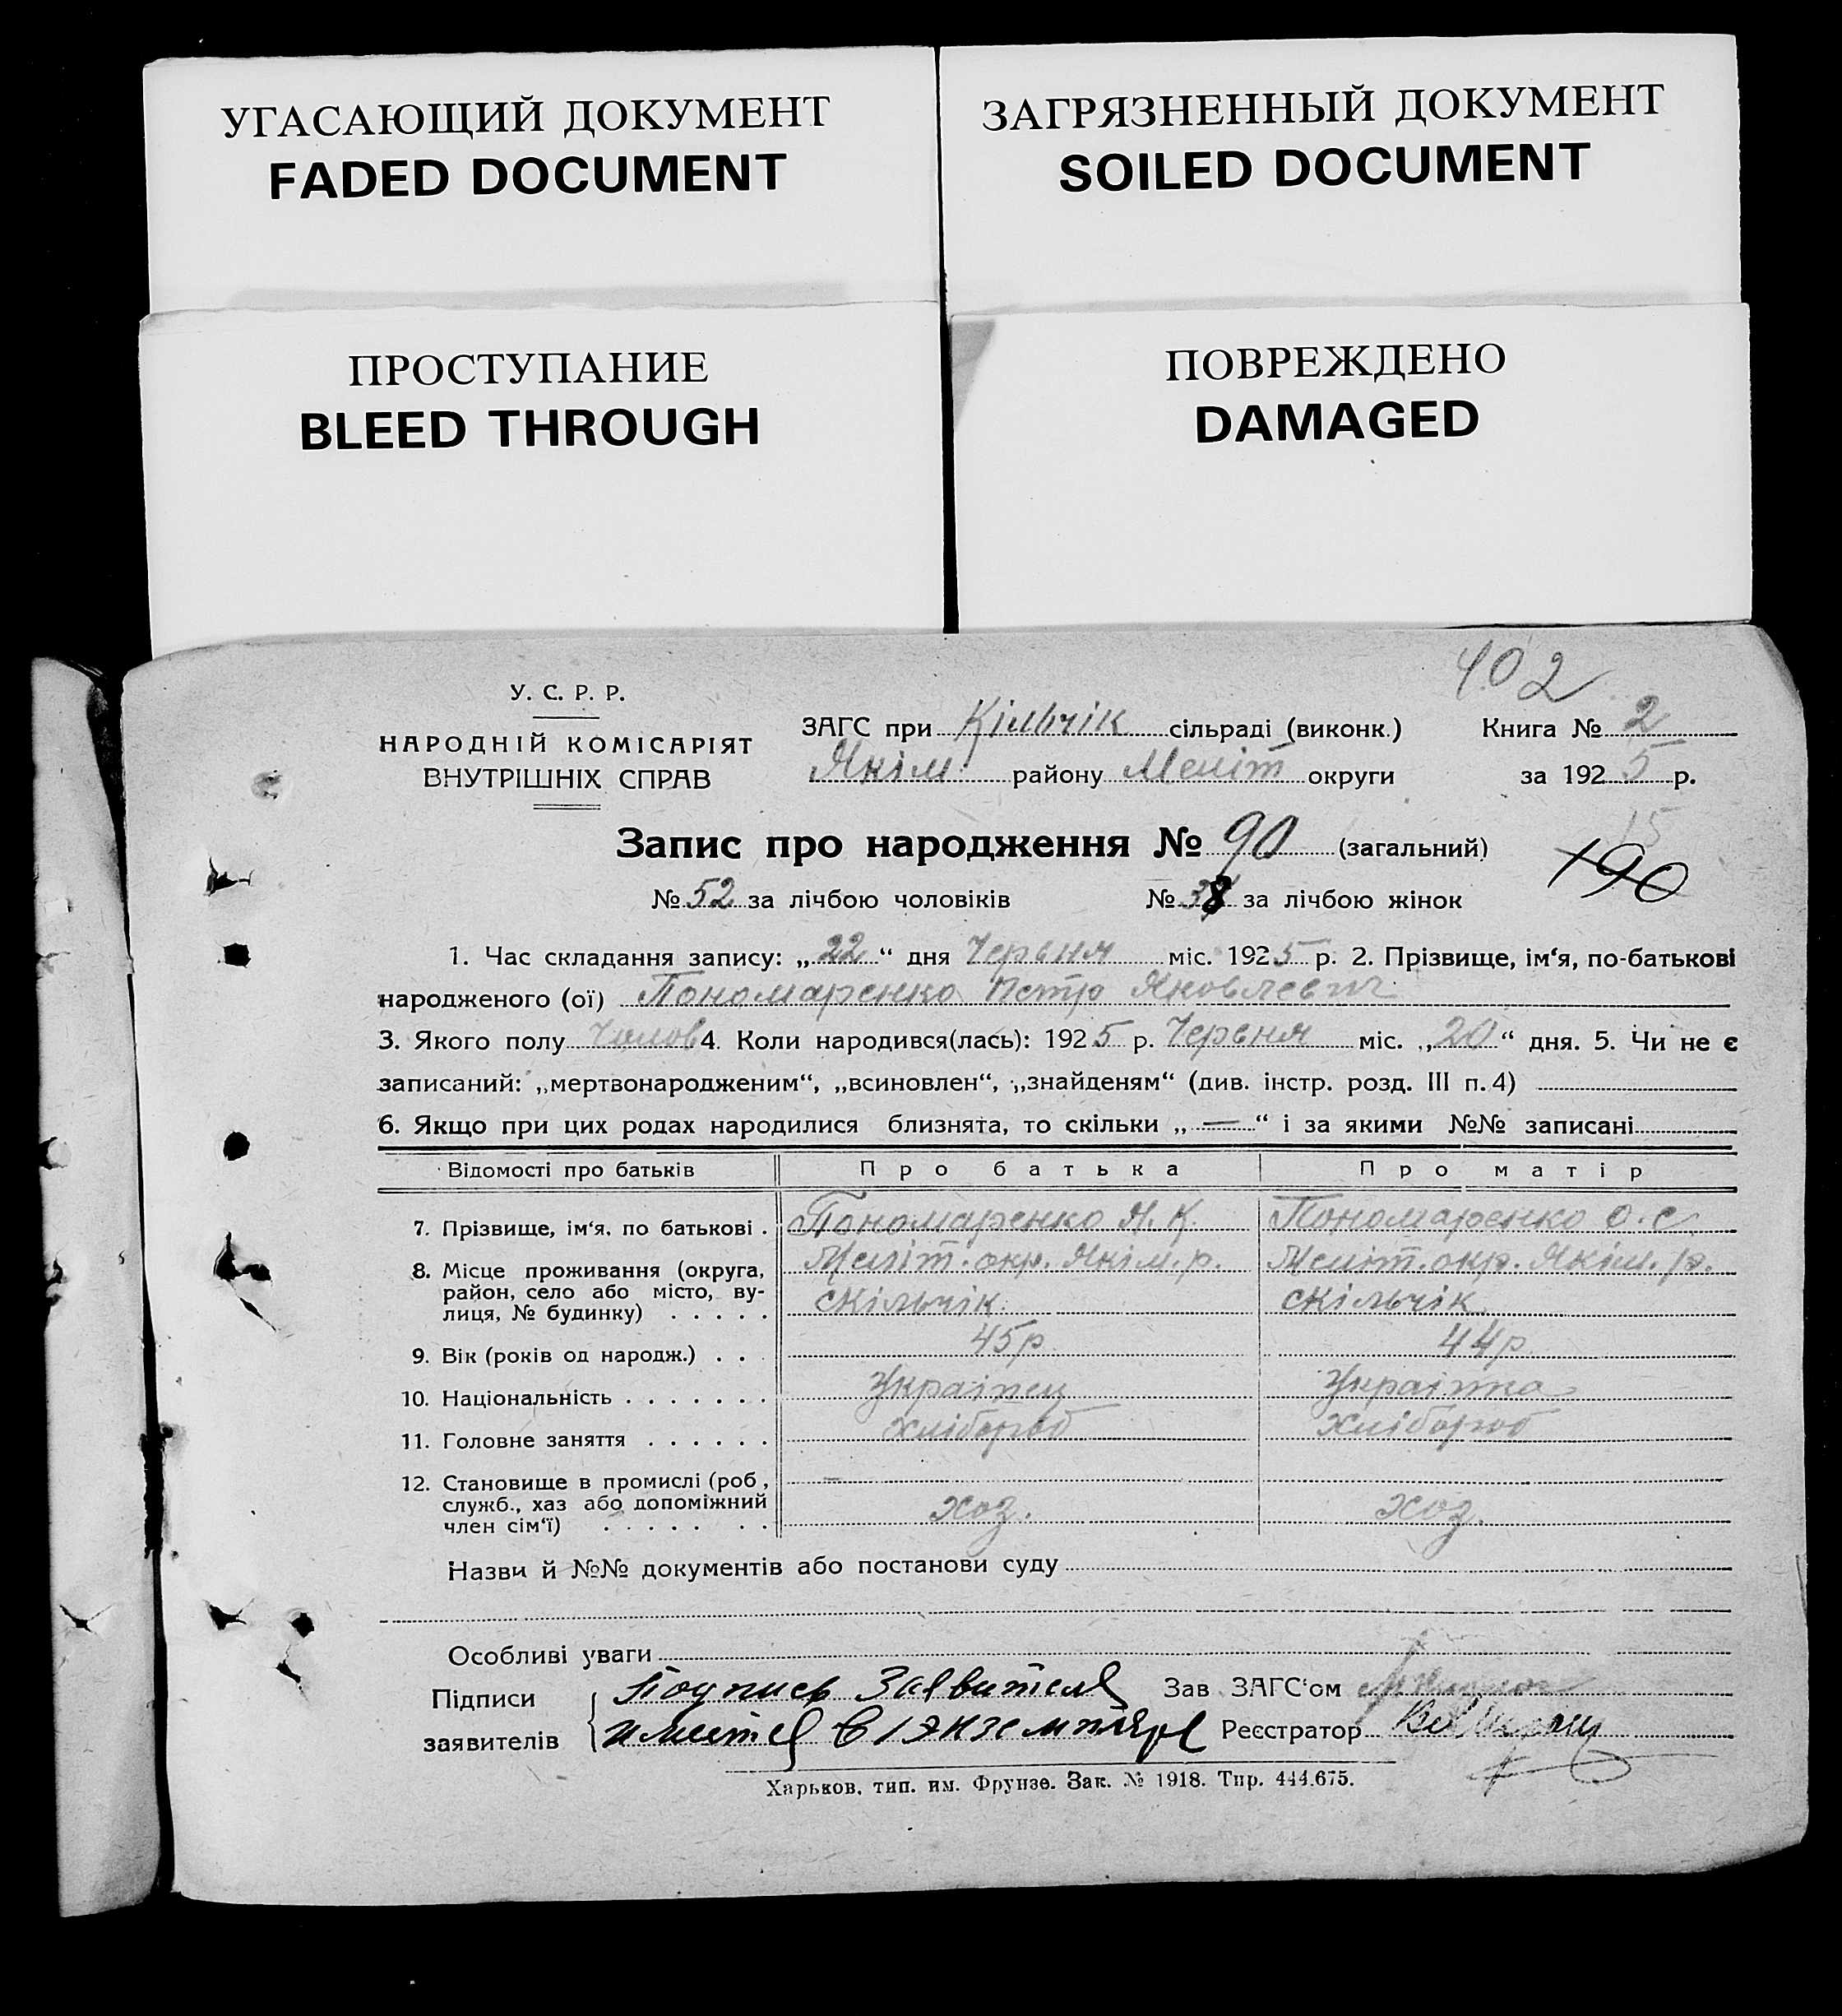 УГАСАЮЩИЙ ДОКУМЕНТ
FADED DOCUMENT
ЗАГРЯЗНЕННЫЙ ДОКУМЕНТ
SOILED DOCUMENT
ПРОСТУПАНИЕ
BLEED THROUGH
ПОВРЕЖДЕНО
DAMAGED
402
У. С. Р. Р.
НАРОДНІЙ КОМІСАРІЯТ
ВНУТРІШНІХ СПРАВ
ЗАГС при Кільчік сільраді (виконк.) Книга № 2
Якім. району Меліт округи за 1925 р.
15
Запис про народження № 90 (загальний) 190
№ 52 за лічбою чоловіків № 38 за лічбою жінок
1. Час складання запису: „22“ дня Червня міс. 1925 р. 2. Прізвище, ім‘я, по-батькові
народженого (ої) Пономаренко Петро Яковлевич
3. Якого полу Чолов 4. Коли народився(лась): 1925 р. Червня міс. „20“ дня. 5. Чи не є
записаний: „мертвонародженим“, „всиновлен“, „знайденям“ (див. інстр. розд. III п. 4)
6. Якщо при цих родах народилися близнята, то скільки „—“ і за якими №№ записані
Відомості про батьків Про батька Про матір
7. Прізвище, ім‘я, по батькові . Пономаренко Я. К. Пономаренко О. С
8. Місце проживання (округа, Меліт. окр. Якім. р. Меліт. окр. Якім. р.
район, село або місто, ву-
лиця, № будинку) . . . . . с Кільчік с Кільчік
9. Вік (років од народж.) . . 45р. 44р.
10. Національність . . . . . . . Українец Українка
11. Головне заняття . . . . . . хлібороб хлібороб
12. Становище в промислі (роб,
служб., хаз або допоміжний
член сім‘ї) . . . . . . . хоз. хоз.
Назви й №№ документів або постанови суду
Особливі уваги
Підписи Подпись Заявителя Зав ЗАГС‘ом
заявителів имеется в 1 экземпляре Реєстратор
Харьков, тип. им. Фрунзе. Зак. № 1918. Тир. 444.675.